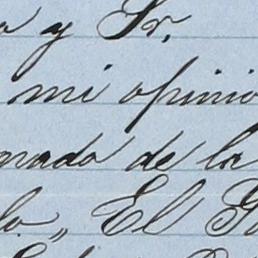 y Sr.
mi opinio
nada de la
la„ El